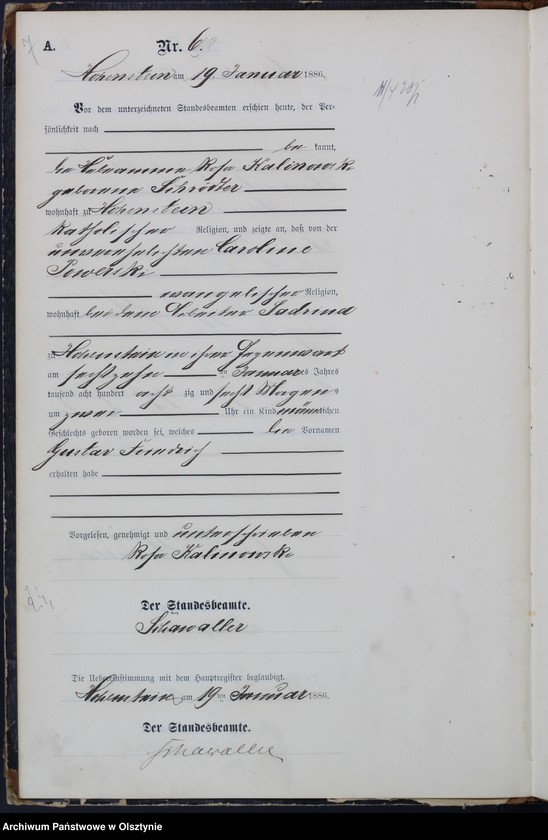 7
A.
Nr. 6.
Hohenstein am 19. Januar 1886.
Vor dem unterzeichneten Standesbeamten erschien heute, der Per-
sönlichkeit nach
be kannt,
die Hebeamme Rosa Kalinowski
geborene Schrödter
wohnhaft zu Hohenstein
katholischer Religion, und zeigte an, daß von der
unverehelichten Caroline
Powerski
evangelischer Religion,
wohnhaft bei dem Arbeiter
zu Hohenstein in ihrer Gegenwart
am sechszehn ten Januar des Jahres
tausend acht hundert acht zig und sechs Morgens
um zwei Uhr ein Kind männlichen
Geschlechts geboren worden sei, welches die Vornamen
Gustav Friedrich
erhalten habe
Vorgelesen, genehmigt und unterschrieben
Rosa Kalinowski
Der Standesbeamte.
Schawaller
Die Uebereinstimmung mit dem Hauptregister beglaubigt.
Hohenstein am 19ten Januar 1886.
Der Standesbeamte.
Schawaller
Archiwum Państwowe w Olsztynie